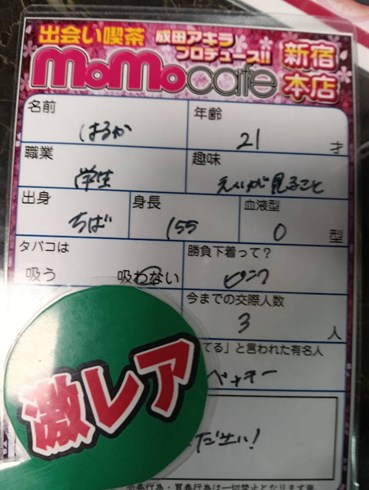 出会い喫茶 成田アキラ
プロデュース!! 新宿
MoMocafe 本店
名前 はるか
年齢 21 才
職業 学生
趣味 えいが見ること
出身 ちば
身長 155
血液型 O 型
タバコは
吸う 吸わない
勝負下着って?
ピンク
今までの交際人数
3 人
てる」と言われた有名人
ベッキー
激レア
ださい!
売春行為・買春行為は一切禁止となります